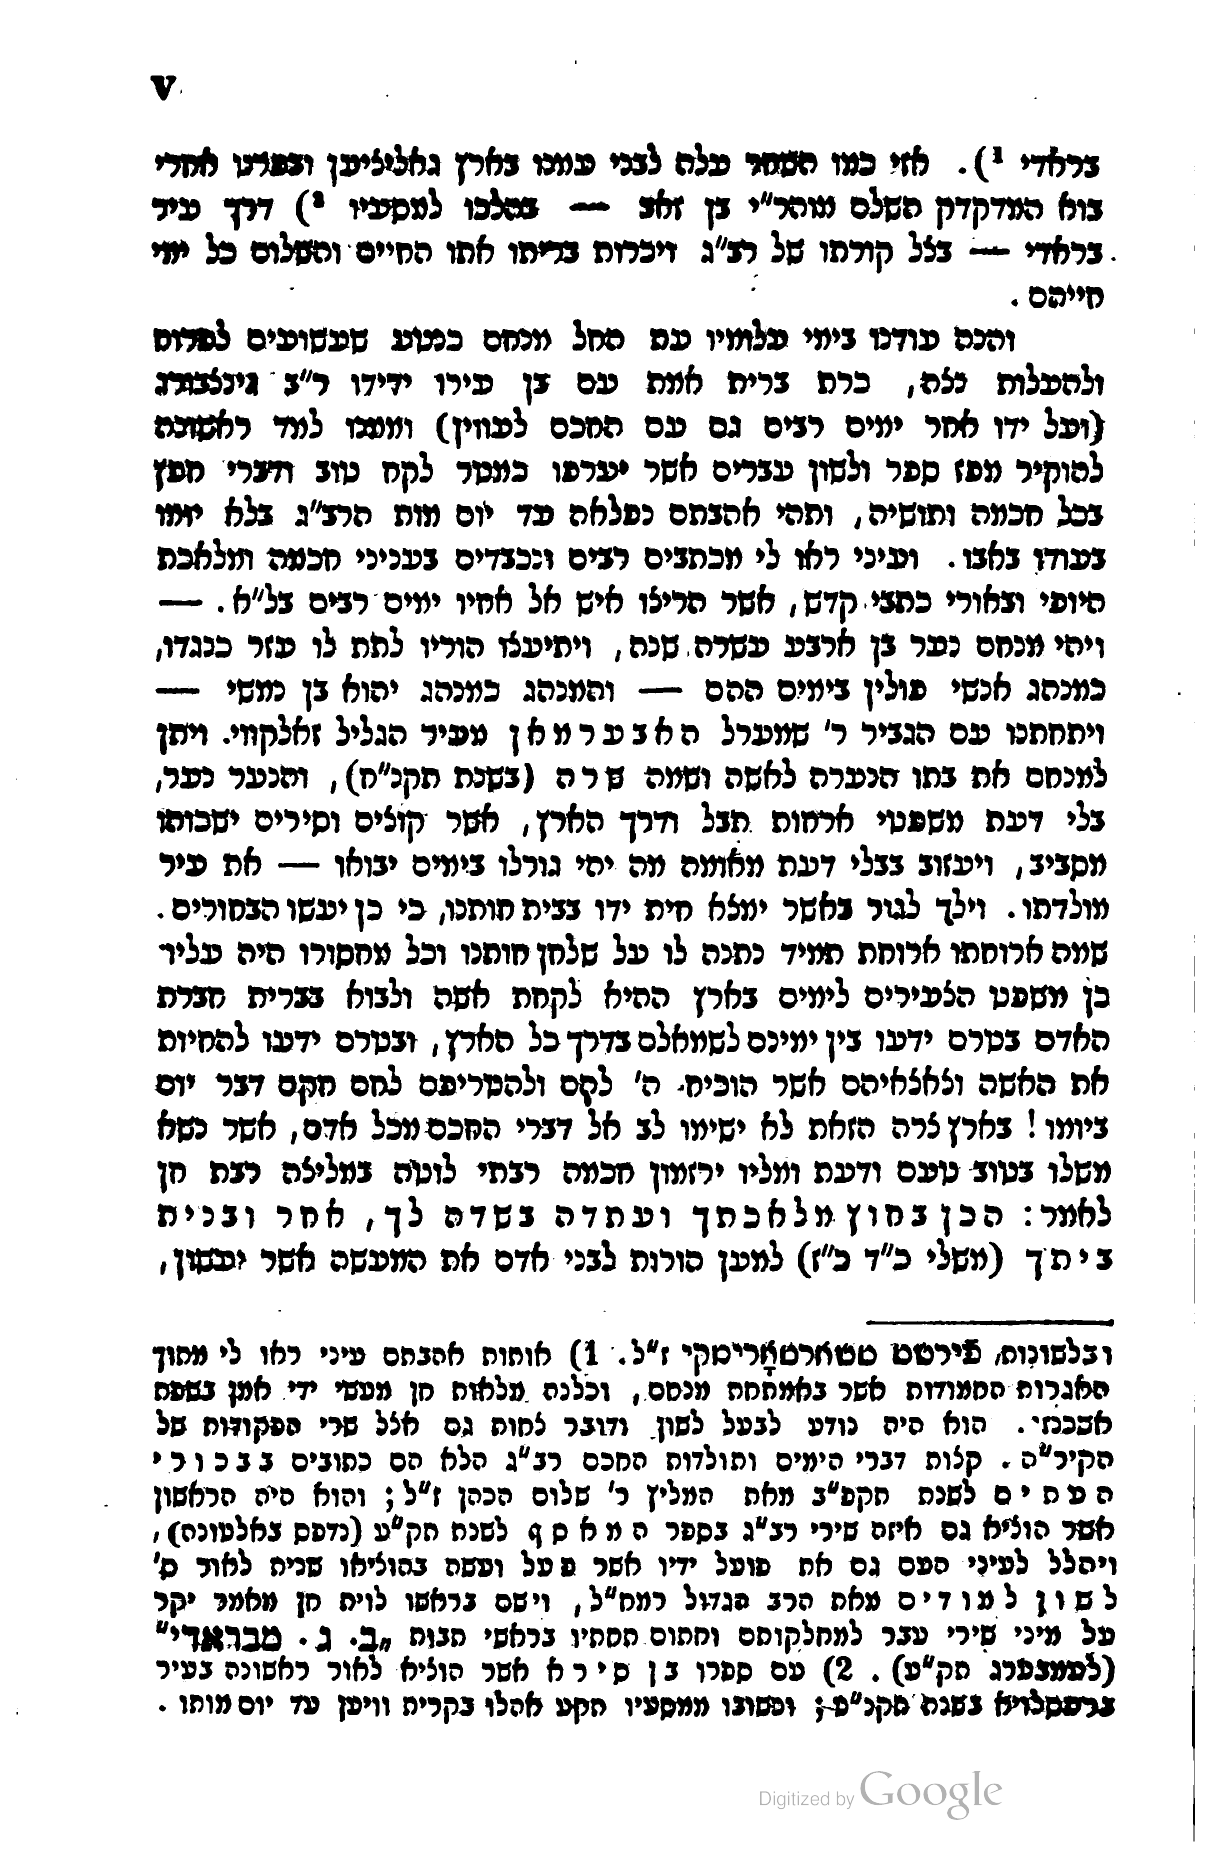 V
בראדי ¹). אזי כמו השחר עלה לבני עמנו בארץ גאליליען ובפרט אחרי
בוא המדקדק השלם מוהר״י בן זאב — בהלכו למסעיו ²) דרך עיר
בראדי — בצל קורתו של רצ״ג ויכרות בריתו אתו החיים והשלום כל ימי
חייהם.
והנה עודנו בימי עלומיו עם החל מנחם בנטע שעשועים לפרוח
ולהעלות נצה, כרת ברית אמת עם בן עירו ידידו ר״ב גינצבורג
(ועל ידו אחר ימים רבים גם עם החכם לעווין) וממנו למד ראשונה
להוקיר מפז ספר ולשון עברים אשר יערפו כמטר לקח טוב ודברי חפץ
בכל חכמה ותושיה, ותהי אהבתם נפלאה עד יום מות הרצ״ג בלא יומו
בעודו באבו. ועיני ראו לי מכתבים רבים ונכבדים בעניני חכמה ומלאכת
היופי ובאורי כתבי קדש, אשר הריצו איש אל אחיו ימים רבים בל״א. —
ויהי מנחם נער בן ארבע עשרה שנה, ויתיעצו הוריו לתת לו עזר כנגדו,
כמנהג אנשי פולין בימים ההם — והמנהג כמנהג יהוא בן נמשי —
ויתחתנו עם הגביר ר׳ שמערל האבערמאן מעיר הגליל זאלקווי. ויתן
למנחם את בתו הנערה לאשה ושמה שרה (בשנת תקנ״ח), והנער נער,
בלי דעת משפטי ארחות תבל ודרך הארץ, אשר קוצים וסירים ישכותו
מסביב, ויעזוב בבלי דעת מאומה מה יהי גורלו בימים יבואו — את עיר
מולדתו. וילך לגור באשר ימצא חית ידו בבית חותנו, כי כן יעשו הבחורים.
שמה ארוחתו ארוחת תמיד נתנה לו על שלחן חותנו וכל מחסורו היה עליו
כן משפט הצעירים לימים בארץ ההיא לקחת אשה ולבוא בברית חברת
האדם בטרם ידעו בין ימינם לשמאלם בדרך כל הארץ, ובטרם ידעו להחיות
את האשה וצאצאיהם אשר הוכיח ה׳ להם ולהטריפם לחם חקם דבר יום
ביומו! בארץ צרה הזאת לא ישימו לב אל דברי החכם מכל אדם, אשר נשא
משלו בטוב טעם ודעת ומליו ירזמון חכמה רבתי לוטה במליצה רבת חן
לאמר: הכן בחוץ מלאכתך ועתדה בשדה לך, אחר ובנית
ביתך (משלי כ״ד כ״ז) למען הורות לבני אדם את המעשה אשר יעשון,
ובלשונות, פירסט טשארטאריסקי ז״ל. 1) אותות אהבתם עיני ראו לי מתוך
האגרות החמודות אשר באמתחת מנחם, וכלנה מלאות חן מעשי ידי אמן בשפת
אשכנזי. הוא היה נודע לבעל לשון ודובר צחות גם אצל שרי הפקודות של
הקיר״ה. קצות דברי הימים ותולדות החכם רצ״ג הלא הם כתובים בבכורי
העתים לשנת תקפ״ב מאת המליץ ר׳ שלום הכהן ז״ל; והוא היה הראשון
אשר הוציא גם איזה שירי רצ״ג בספר המאסף לשנת תק״ע (נדפס באלטונה),
ויהלל לעיני העם גם את פועל ידיו אשר פעל ועשה בהוציאו שנית לאור ס׳
לשון למודים מאת הרב הגדול רמח״ל, וישם בראשו לוית חן מאמר יקר
על מיני שירי עבר למחלקותם וחתום תחתיו בראשי תבות „ב. ג. מבראדי״
(לעמבערג תק״ע). 2) עם ספרו בן סירא אשר הוציא לאור ראשונה בעיר
ברעסלויא בשנת תקנ״ח; ובשובו ממסעיו תקע אהלו בקרית וויען עד יום מותו.
Digitized by Google